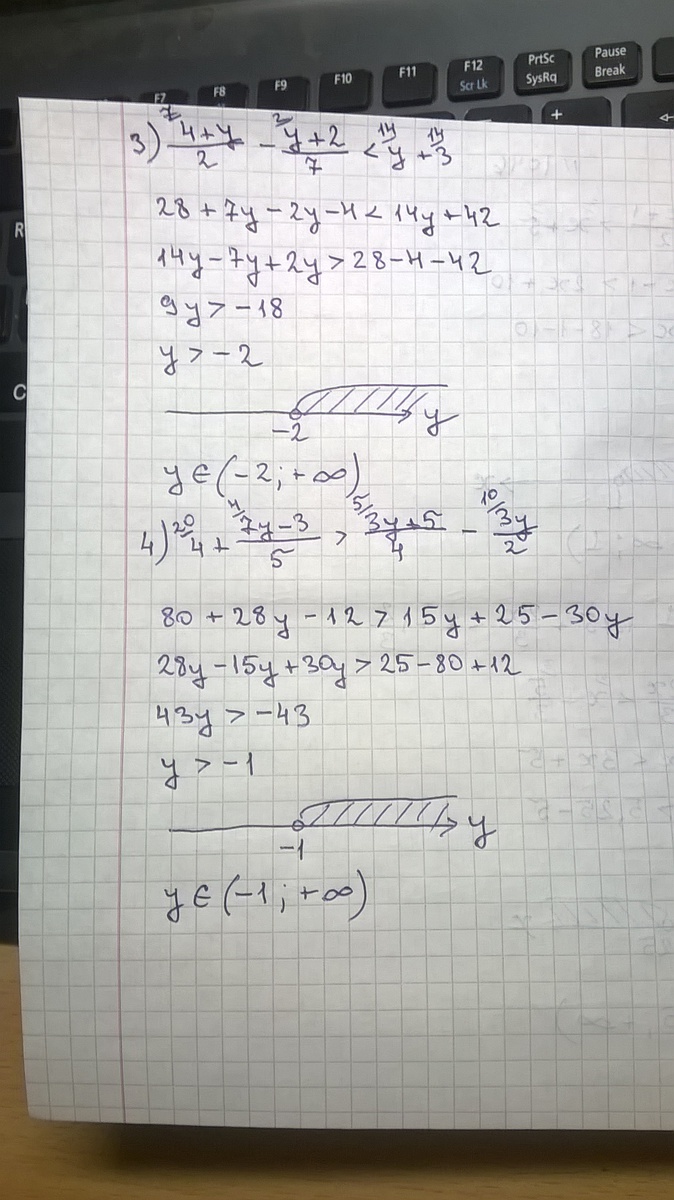 F7 F8 F9 F10 F11 F12 Scr Lk PrtSc SysRq Pause Break
R
C
+
3) ⁷/(4+y)/2 - ²/(y+2)/7 < ¹⁴/y + ¹⁴/3
28 + 7y - 2y - 4 < 14y + 42
14y - 7y + 2y > 28 - 4 - 42
9y > -18
y > -2
-2 y
y ∈ (-2; +∞)
4) ²⁰/4 + ⁴/(7y-3)/5 > ⁵/(3y+5)/4 - ¹⁰/3y/2
80 + 28y - 12 > 15y + 25 - 30y
28y - 15y + 30y > 25 - 80 + 12
43y > -43
y > -1
-1 y
y ∈ (-1; +∞)